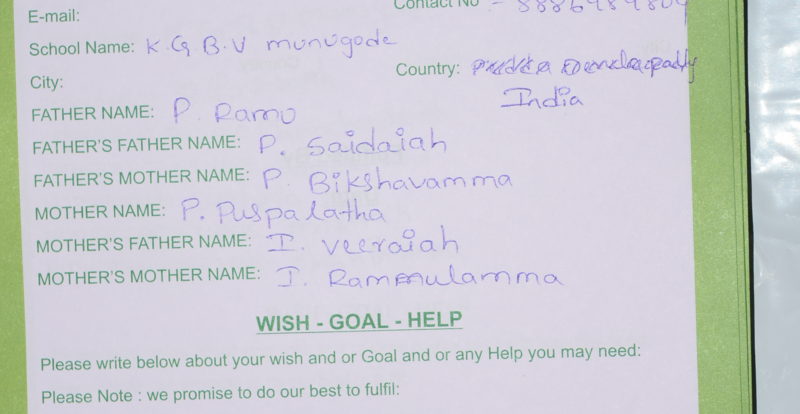 Contact No -
E-mail:
School Name: K.G B.V munugode
City:
Country:
India
FATHER NAME: P. Ramu
FATHER'S FATHER NAME: P. Saidaiah
FATHER'S MOTHER NAME: P. Bikshavamma
MOTHER NAME: P. Puspalatha
MOTHER'S FATHER NAME: I. veeraiah
MOTHER'S MOTHER NAME: I. Rammulamma
WISH - GOAL - HELP
Please write below about your wish and or Goal and or any Help you may need:
Please Note : we promise to do our best to fulfil: